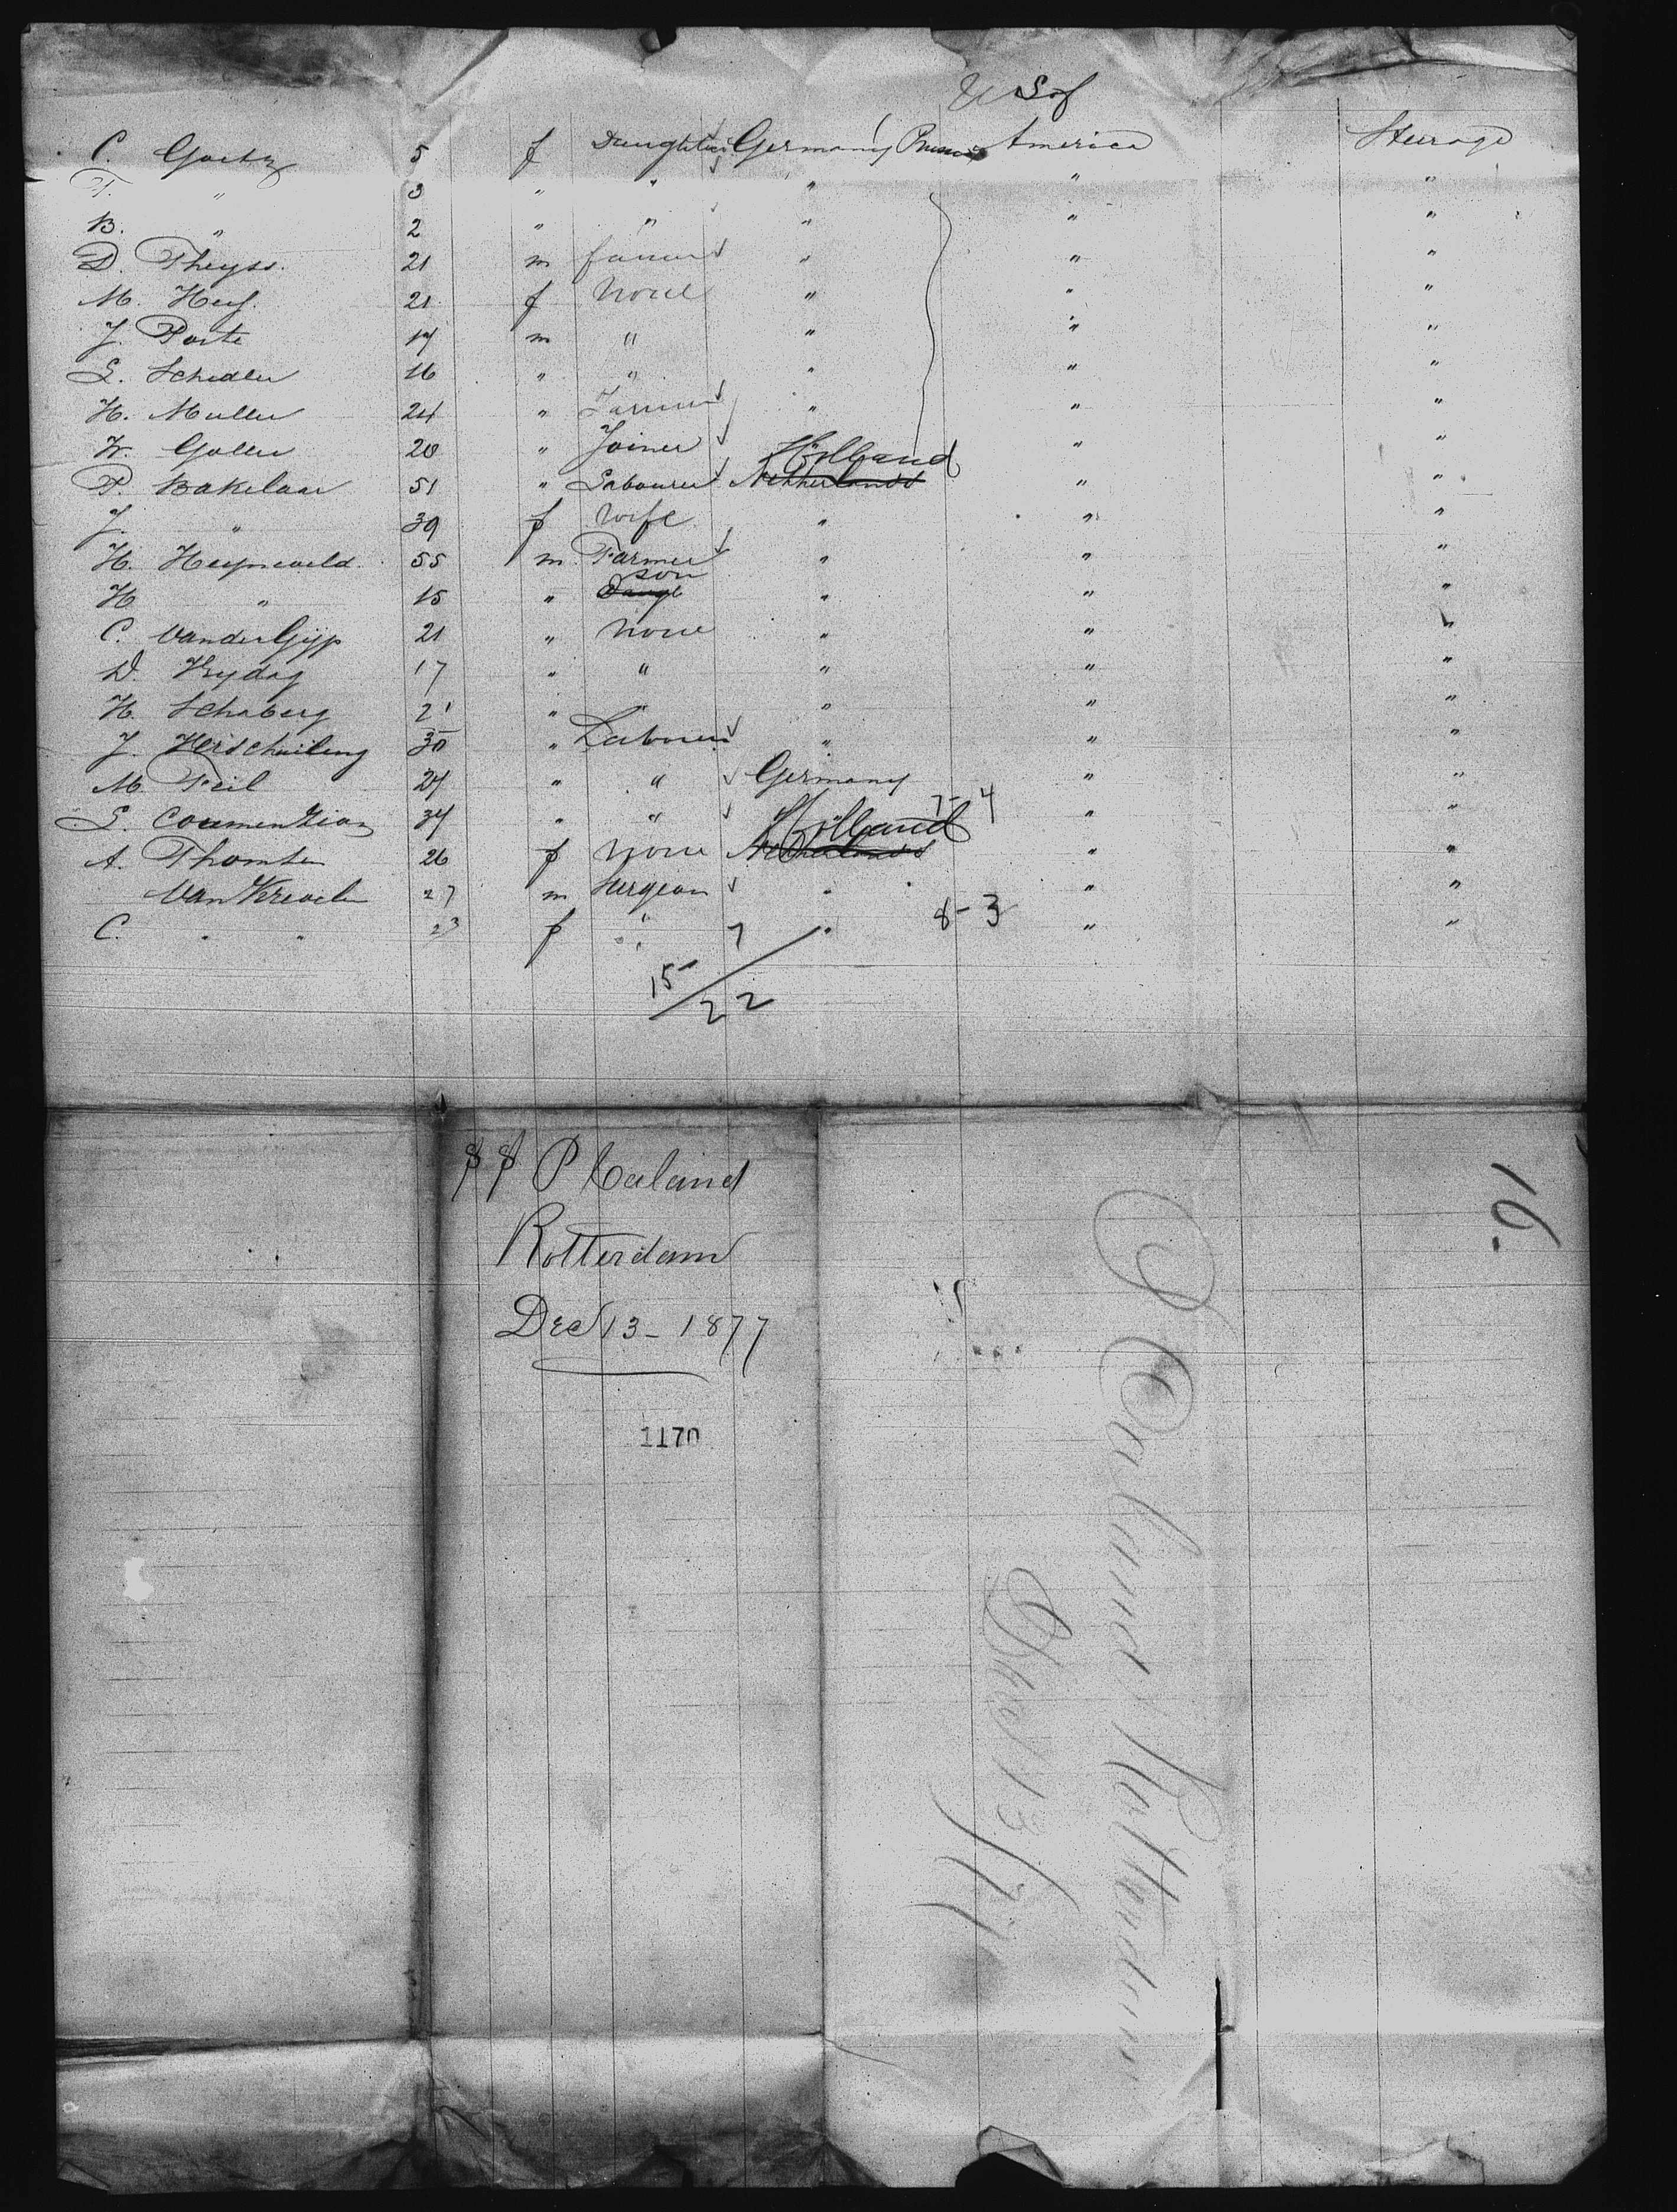 U S of
C. Goetz 5 f Daughter Germany Prussia America Steerage
T. " 3 " " " " "
B. " 2 " " " " "
D. Theyss. 21 m farmer " " "
M. Hey. 21 f None " " "
J. Porte 19 m " " " "
L. Schedler 16 " " " " "
H. Muller 24 " Farmer " " "
W. Goller 20 " Joiner " " "
Holland
P. Bakelaar 51 " Labourer Netherlands " "
J. " 39 f wife " " "
H. 55 m Farmer " " "
son
H " 15 " Daugt " " "
C. VanderGyp 21 " None " " "
D. Vrydag 17 " " " " "
H. Schaberg 21 " " " " "
J. 30 " Labourer " " "
M. Feil 24 " " Germany " "
7-4
S. 34 " " Holland " "
A. Thomsen 26 f None Netherlands " "
Van Krevelen 27 m Surgeon " " "
8-3
C. " " 23 f " " " "
7
15/22
SS P Caland
Rotterdam
Dec 13- 1877
1170
16.
P Caland Rotterdam
Dec 13/77